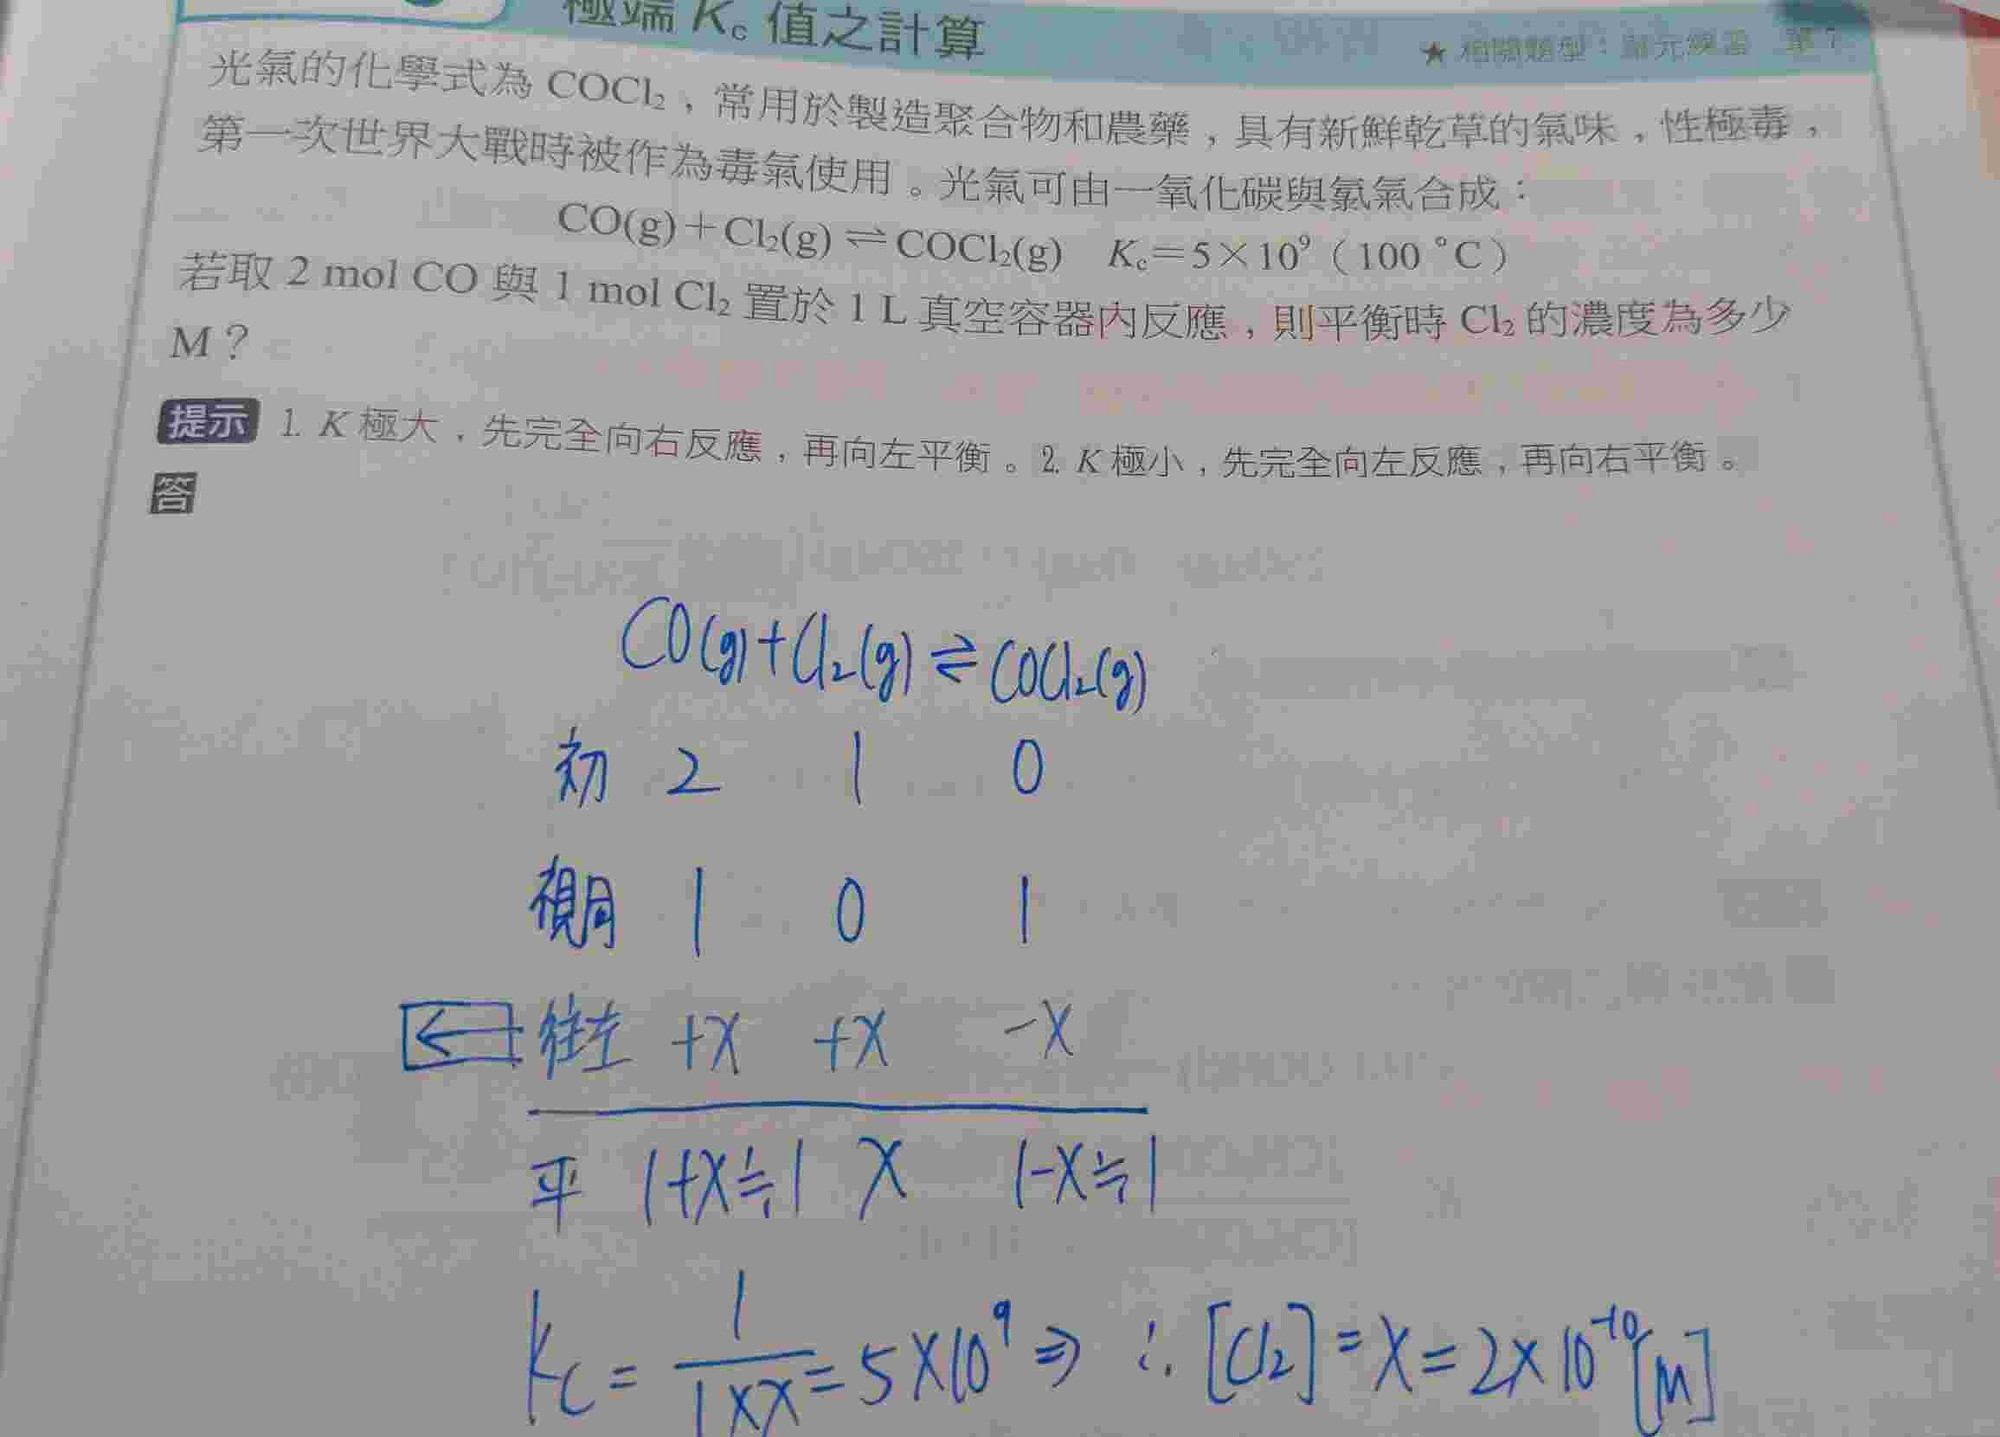 極端 Kc 值之計算
★相關題型：單元練習 第7
光氣的化學式為 COCl₂，常用於製造聚合物和農藥，具有新鮮乾草的氣味，性極毒，
第一次世界大戰時被作為毒氣使用。光氣可由一氧化碳與氯氣合成：
CO(g)+Cl₂(g)⇌COCl₂(g) Kc=5×10⁹（100 °C）
若取 2 mol CO 與 1 mol Cl₂ 置於 1 L 真空容器內反應，則平衡時 Cl₂ 的濃度為多少
M？
提示 1. K 極大，先完全向右反應，再向左平衡。2. K 極小，先完全向左反應，再向右平衡。
答
CO(g)+Cl₂(g)⇌COCl₂(g)
初 2 1 0
1 0 1
← 往左 +x +x -x
平 1+x≒1 x 1-x≒1
Kc = 1/(1×x) = 5×10⁹ ⇒ ∴ [Cl₂] = x = 2×10⁻¹⁰ [M]